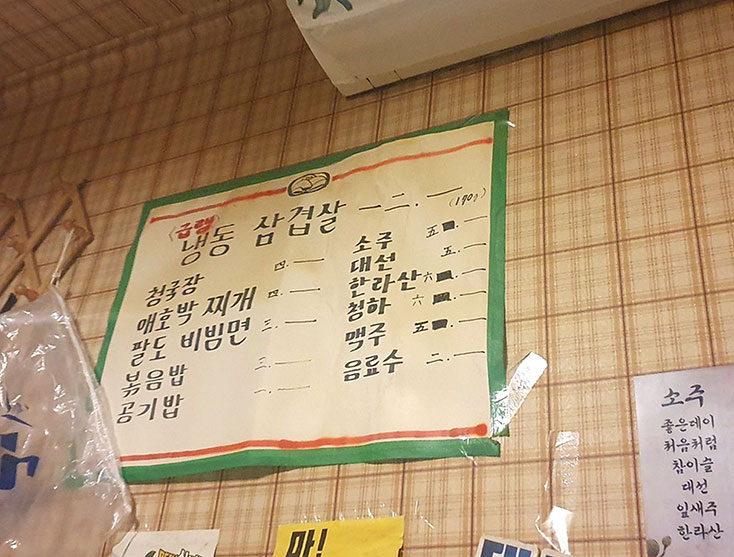 (급랭)
냉동 삼겹살 一二.一
(170g)
청국장 四.一
애호박 찌개 四.一
팔도 비빔면 三.一
볶음밥 三.一
공기밥 一.一
소주 五■.一
대선 五.一
한라산 六■.一
청하 六■.一
맥주 五■.一
음료수 二.一
소주
좋은데이
처음처럼
참이슬
대선
잎새주
한라산
마!